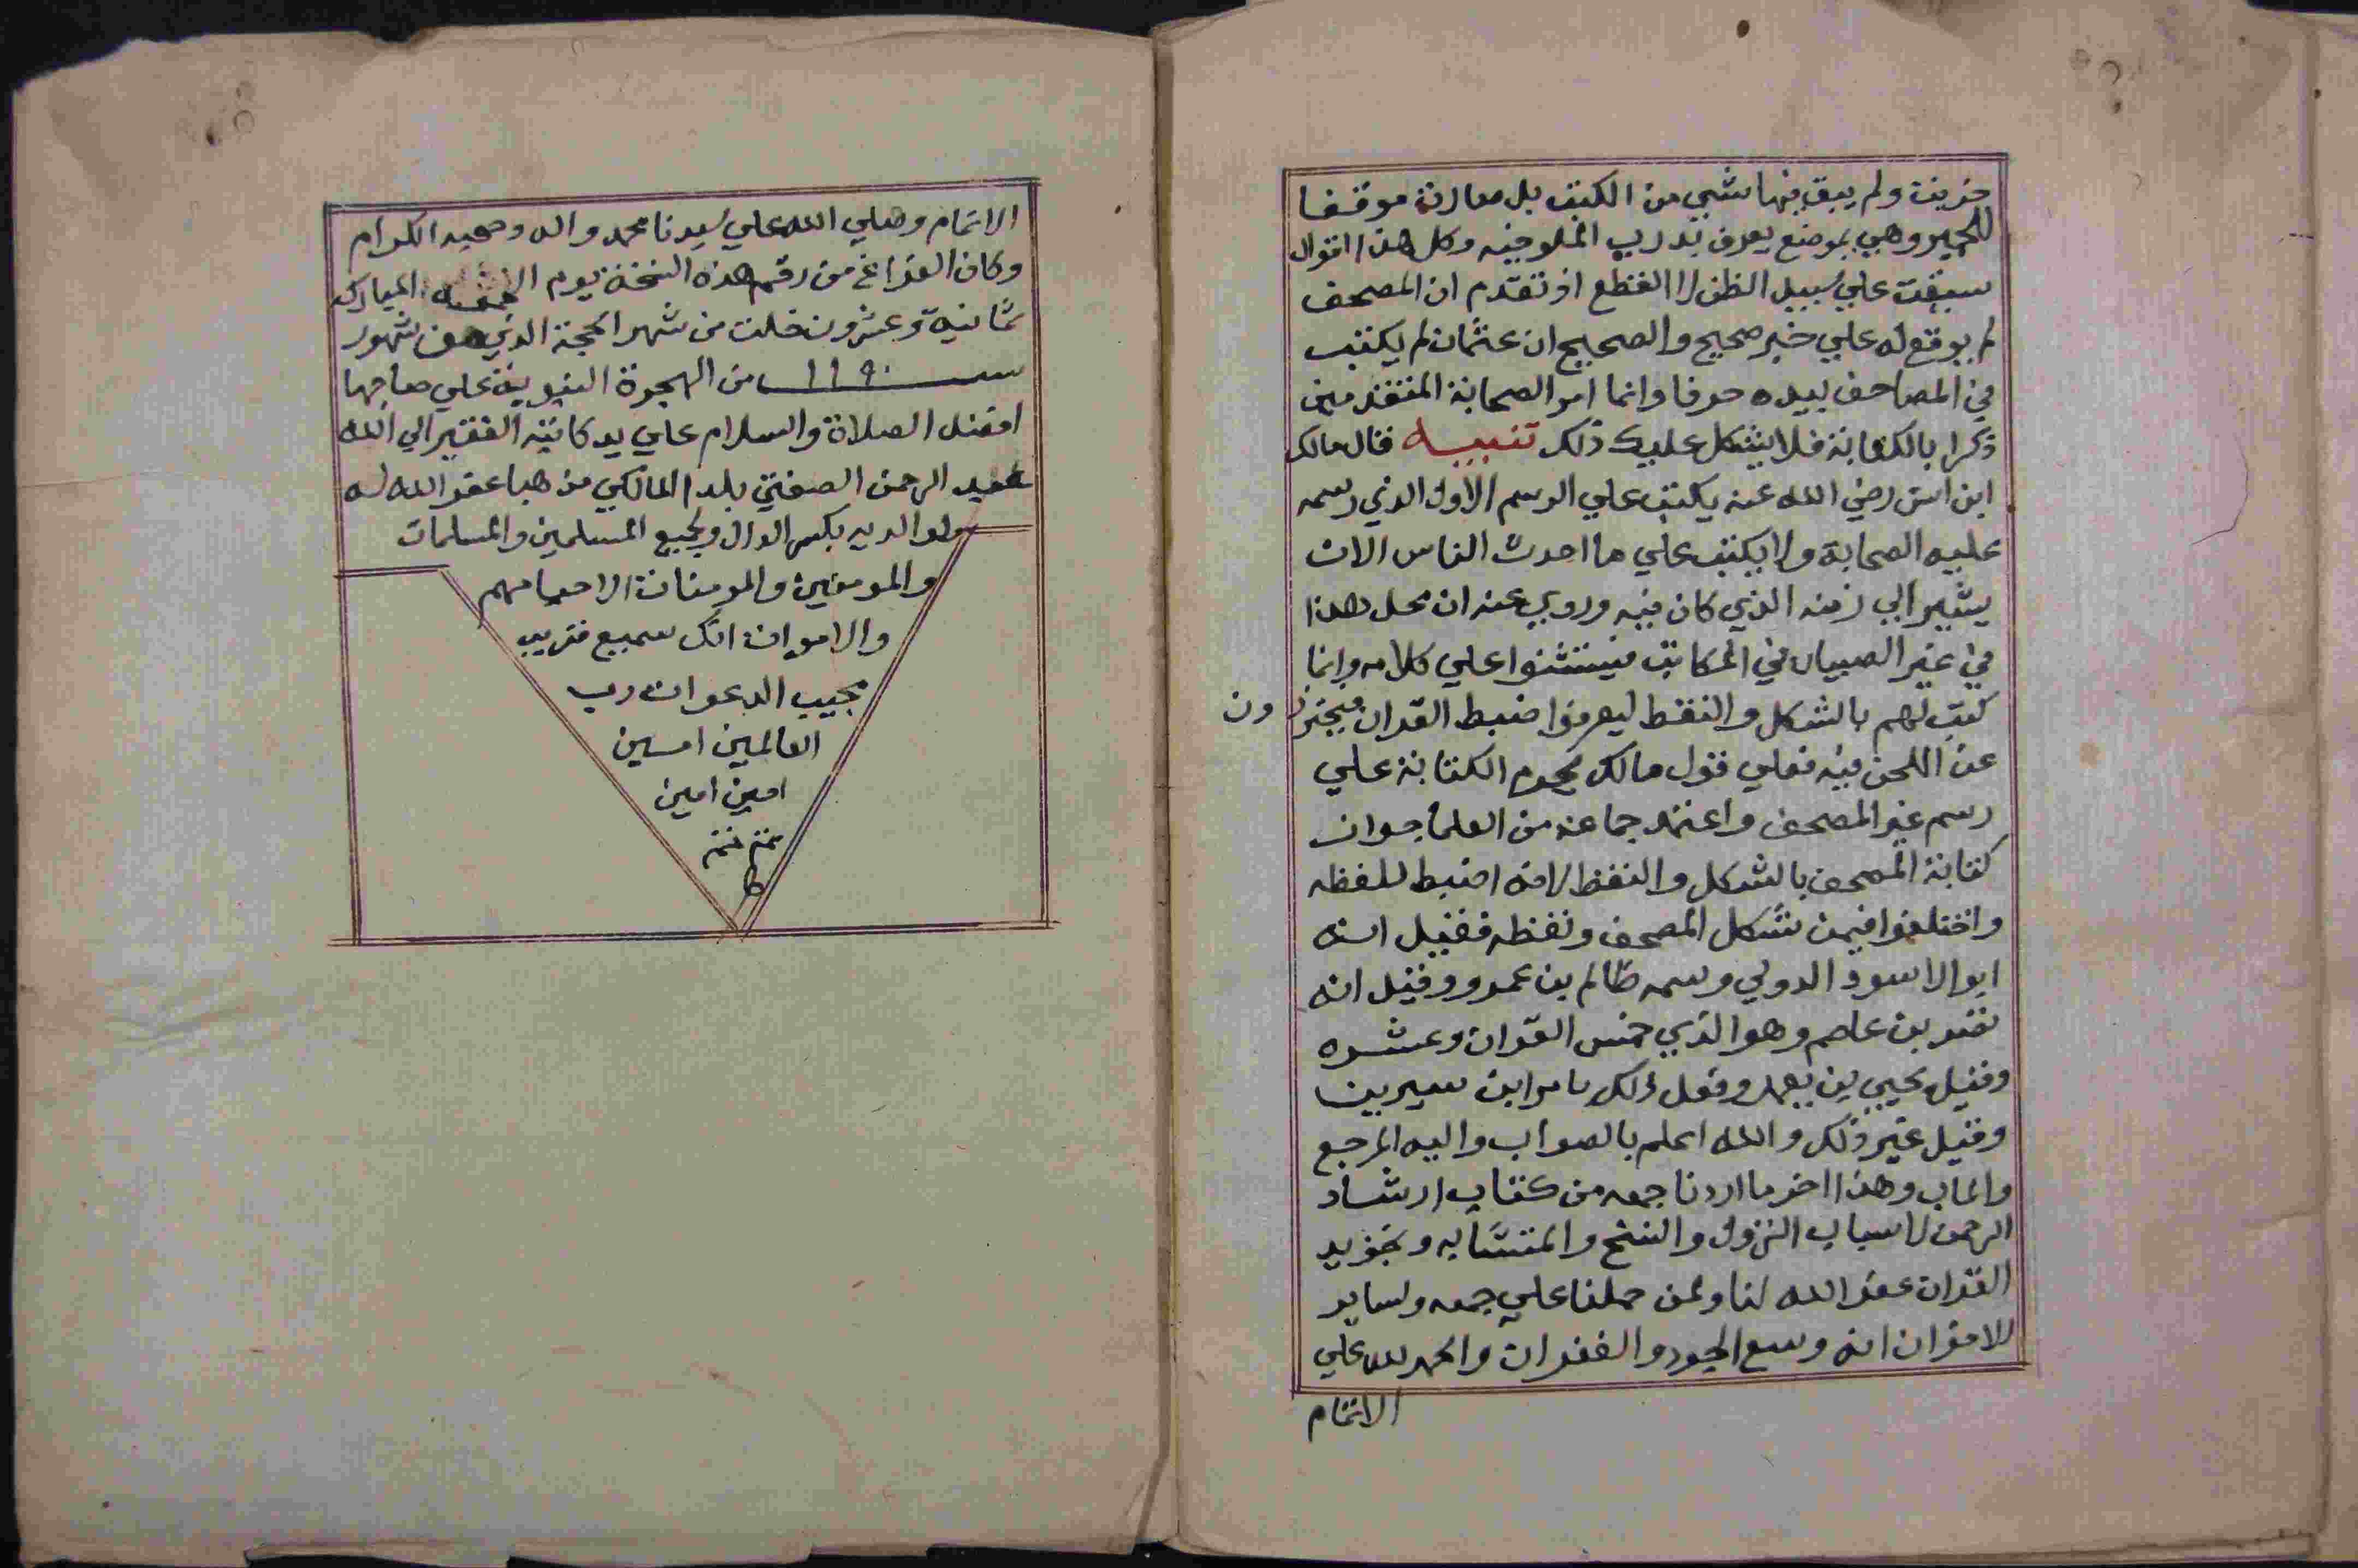 خربت ولم يبق فيها شيي من الكتب بل صارت موقفا
للحمير وهي بموضع يعرف بدرب الملوخيه وكل هذا اقوال
سيقت علي سبيل الظن لا القطع اذ تقدّم ان المصحف
لم يوقع له علي خبر صحيح والصحيح ان عثمان لم يكتب
في المصاحف بيده حرفا وانما امر الصحابة المتقدمين
ذكرا بالكتابة فلا يشكل عليك ذلك تنبيه قال مالك
ابن انس رضي الله عنه يكتب علي الرسم الاول الذي رسمه
عليه الصحابة ولا يكتب علي ما احدث الناس الان
يشير الي زمنه الذي كان فيه وروي عنه ان محل هذا
في غير الصبيان في المكاتب فيستثنوا علي كلامه وانما
كتب لهم بالشكل والنقط ليعرفوا ضبط القران فيحترزون
عن اللحن فيه فعلي قول مالك يحرم الكتابة علي
رسم غير المصحف واعتمد جماعه من العلما جوان
كتابة المصحف بالشكل والنقط لانه اضبط للفظه
واختلفوا فيمن شكل المصحف ونقطه فقيل انه
ابوالاسود الدولي وسمه ظالم بن عمرو وقيل انه
نصر بن عاصم وهو الذي خمس القران وعشره
وقيل يحيي بن يعمر وفعل ذلك بامر ابن سيرين
وقيل غير ذلك والله اعلم بالصواب واليه المرجع
والماب وهذا اخر ما اردنا جمعه من كتاب ارشاد
الرحمن لاسباب النزول والنسخ والمتشابه وتجويد
القران عفر الله لنا ولمن حملنا علي جمعه ولساير
الاخوان انه وسع الجود والغفران والحمد لله علي
الاتمام
الاتمام وصلي الله علي سيدنا محمد واله وصحبه الكرام
وكان الفراغ من رقم هذه النسخة يوم المبارك
ثمانية وعشرون خلت من شهر الحجة الذي من شهور
سنه ١١٩٠ من الهجرة النبوية علي صاحبها
افضل الصلاة والسلام علي يد كاتبه الفقير الي الله
عبد الرحمن الصفتي بلدا المالكي مذهبا عفر الله له
ولوالديه بكسر الدال ولجميع المسلمين والمسلمات
والمومنين والمومنات الاحيا منهم
والاموات انك سميع قريب
مجيب الدعوات رب
العالمين امسين
امين امين
تمتم
ط